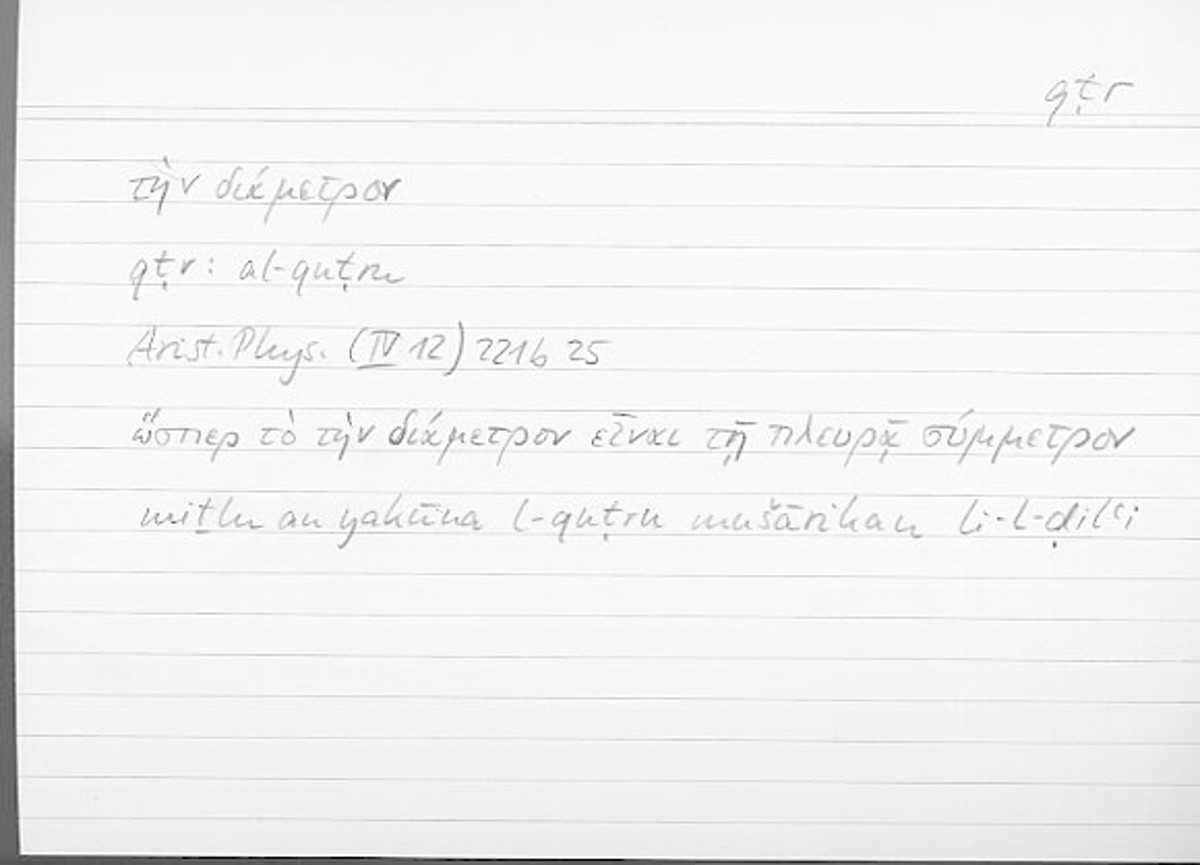 qṭr
τὴν διάμετρον
qṭr: al-quṭru
Arist. Phys. (IV 12) 221b 25
ὥσπερ τὸ τὴν διάμετρον εἶναι τῇ πλευρᾷ σύμμετρον
miṯlu an yakūna l-quṭru mušārikan li-l-ḍilʿi